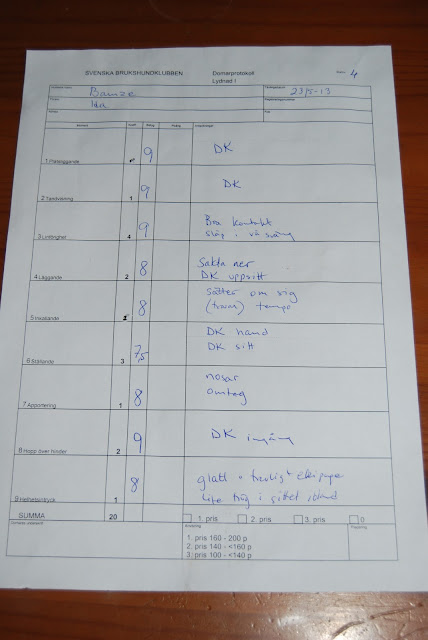 SVENSKA BRUKSHUNDKLUBBEN Domarprotokoll 4
Lydnad I
Bamse 23/5-13
Ida
1 Platsliggande 9 DK
2 Tandvisning 1 9 DK
3 Linförighet 4 9 Bra kontakt
släng i vä sväng
4 Läggande 2 8 Sakta ner
DK uppsitt
5 Inkallande 8 sätter om sig
(travar) tempo
6 Ställande 3 7,5 DK hand
DK sitt
7 Apportering 1 8 nosar
omtag
8 Hopp över hinder 2 9 DK ingång
9 Helhetsintryck 1 8 glatt o trevligt ekipage
lite trög i sittet ibland
SUMMA 20 1. pris 2. pris 3. pris 0
1. pris 160 - 200 p
2. pris 140 - <160 p
3. pris 100 - <140 p